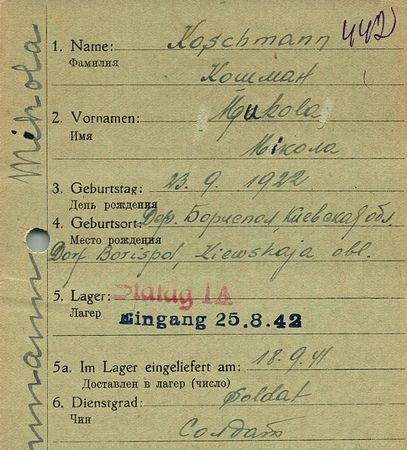 1. Name: Koschmann 442
Фамилия Кошман
2. Vornamen: Mikola
Имя Мікола
3. Geburtstag: 23. 9. 1922
День рождения
4. Geburtsort: Дер. Бориспол, Киевская обл.
Место рождения
Dorf Borispol, Kiewskaja obl.
5. Lager: Stalag IA
Лагер Eingang 25.8.42
5a. Im Lager eingeliefert am: 18.9.41
Доставлен в лагер (число)
6. Dienstgrad: Soldat
Чин Солдат
Mikola